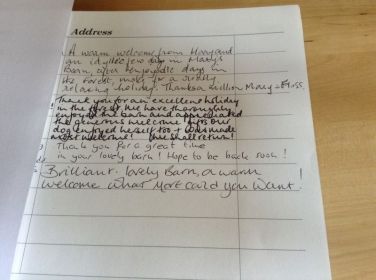 Address
A warm welcome from Mary and
an idyllic few days in Mary's
Barn, after enjoyable days in
the forest, make for a
relaxing holiday. Thanks a million Mary
Thank you for an excellent holiday
in the forest. We have thoroughly
enjoyed the barn and appreciated
the generous welcome gifts our
dog enjoyed herself too + was made
most welcome! We shall return!
Thank you for a great time
in your lovely barn! Hope to be back soon!
Brilliant. lovely Barn, a warm
welcome what more could you want!